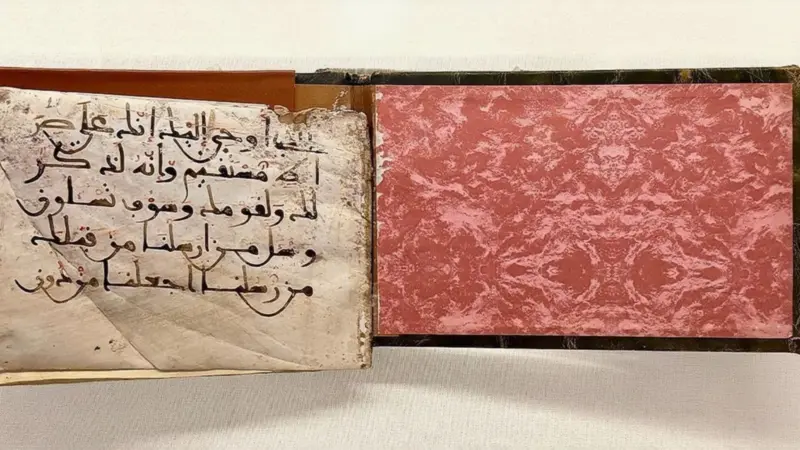 أوحي إليك إنك على صر
اط مستقيم وأنه لذكر
لك ولقومك وسوف تسلون
وسل من ارسلنا من قبلك
من رسلنا اجعلنا من دون